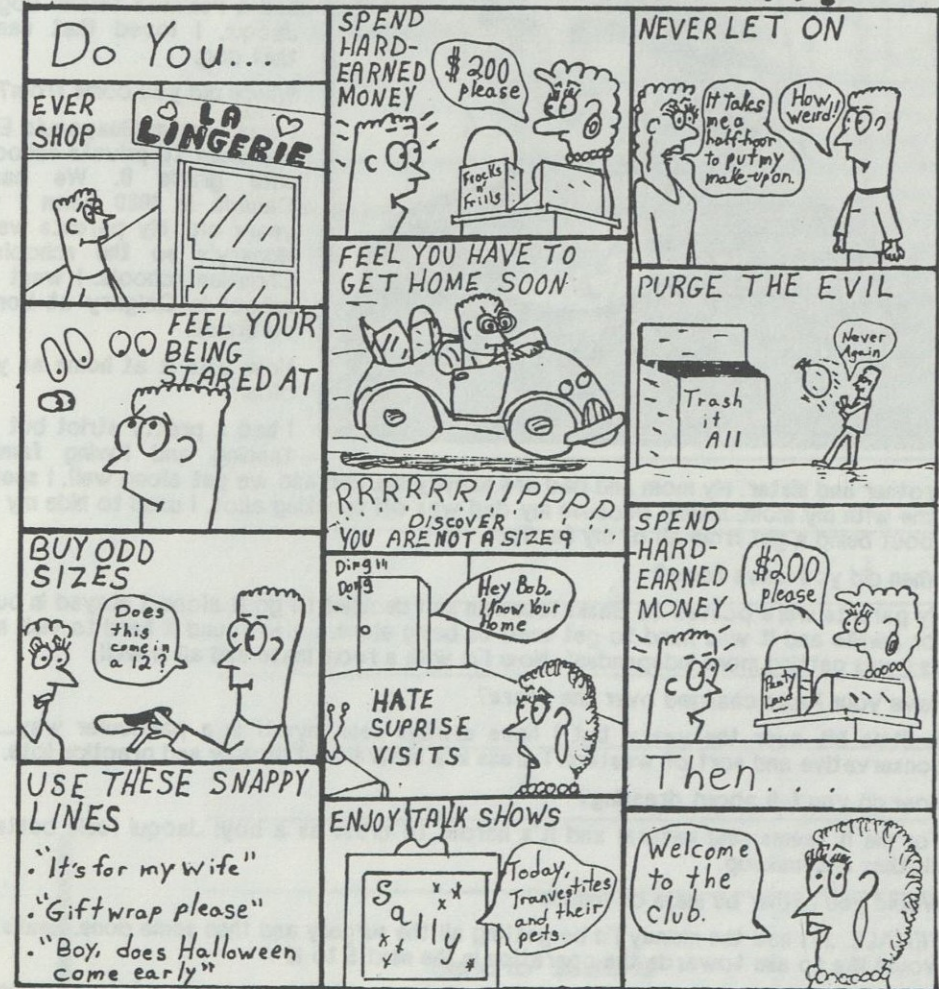 Do You...
EVER
SHOP
LA
LINGERIE
FEEL YOUR
BEING
STARED AT
BUY ODD
SIZES
Does
this
come in
a 12?
USE THESE SNAPPY
LINES
• "It's for my wife"
• "Gift wrap please"
• "Boy, does Halloween
come early"
SPEND
HARD-
EARNED
MONEY
$200
please
Frocks
n'
Frills
FEEL YOU HAVE TO
GET HOME SOON
RRRRRR IPPPP
DISCOVER
YOU ARE NOT A SIZE 9
Ding!!
Dong
Hey Bob,
I know your
Home
HATE
SUPRISE
VISITS
ENJOY TALK SHOWS
Sally
Today,
Tranvestites
and their
pets.
NEVER LET ON
It takes
me a
half-hoor
to put my
make-up on.
How
weird!!
PURGE THE EVIL
Never
Again
Trash
it
All
SPEND
HARD-
EARNED
MONEY
$200
please
Land
Then...
Welcome
to the
club.